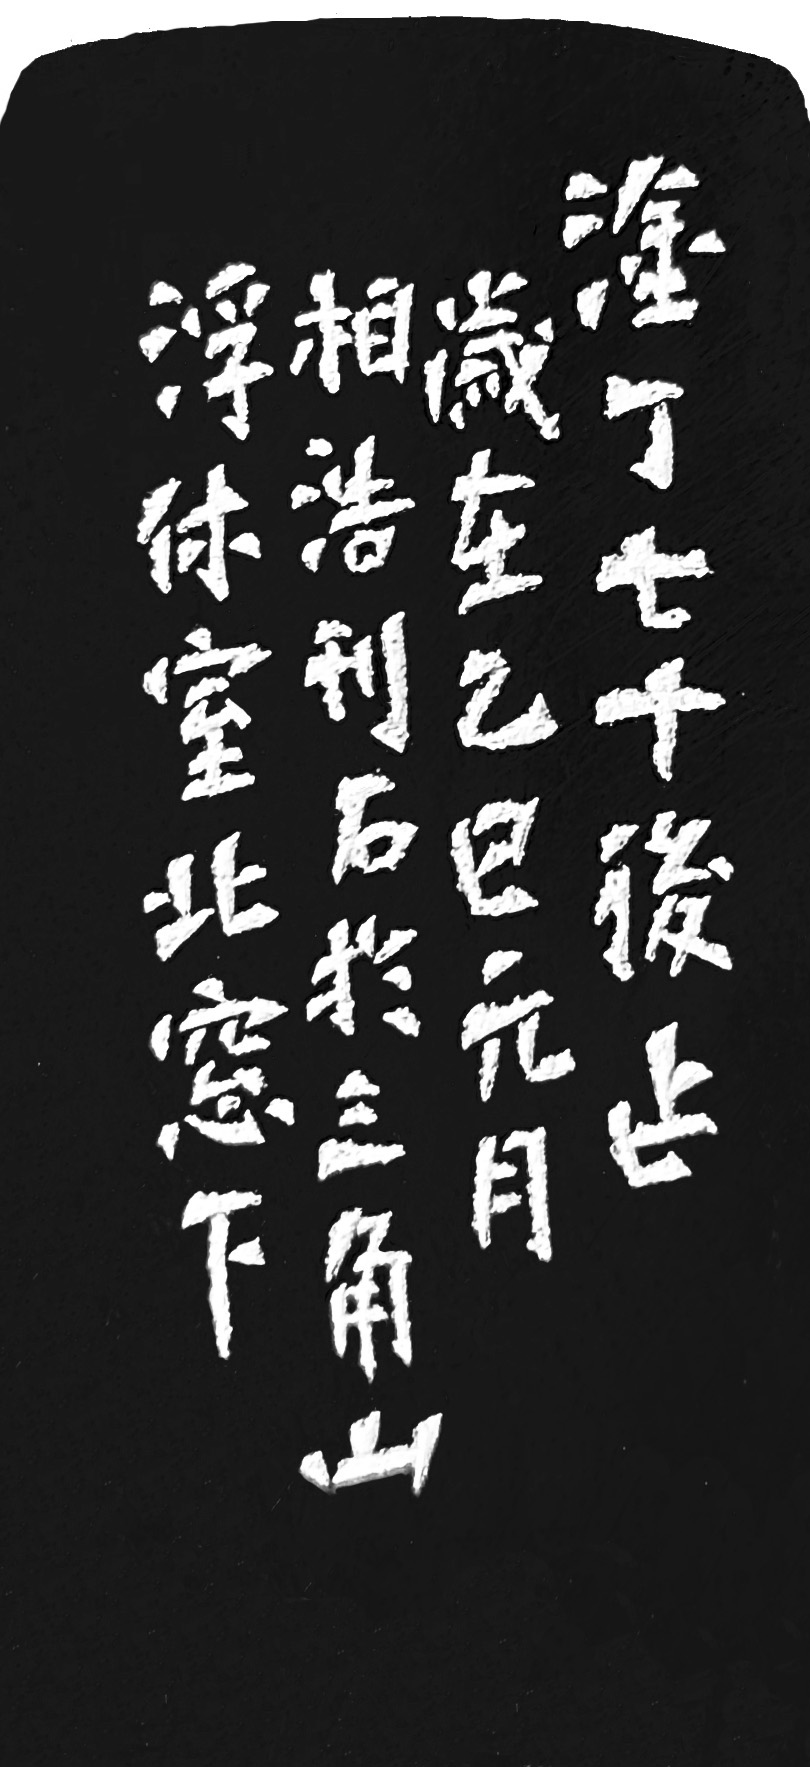 塗丁七十後止
歲在乙巳元月
相浩刊石於三角山
浮休室北窓下